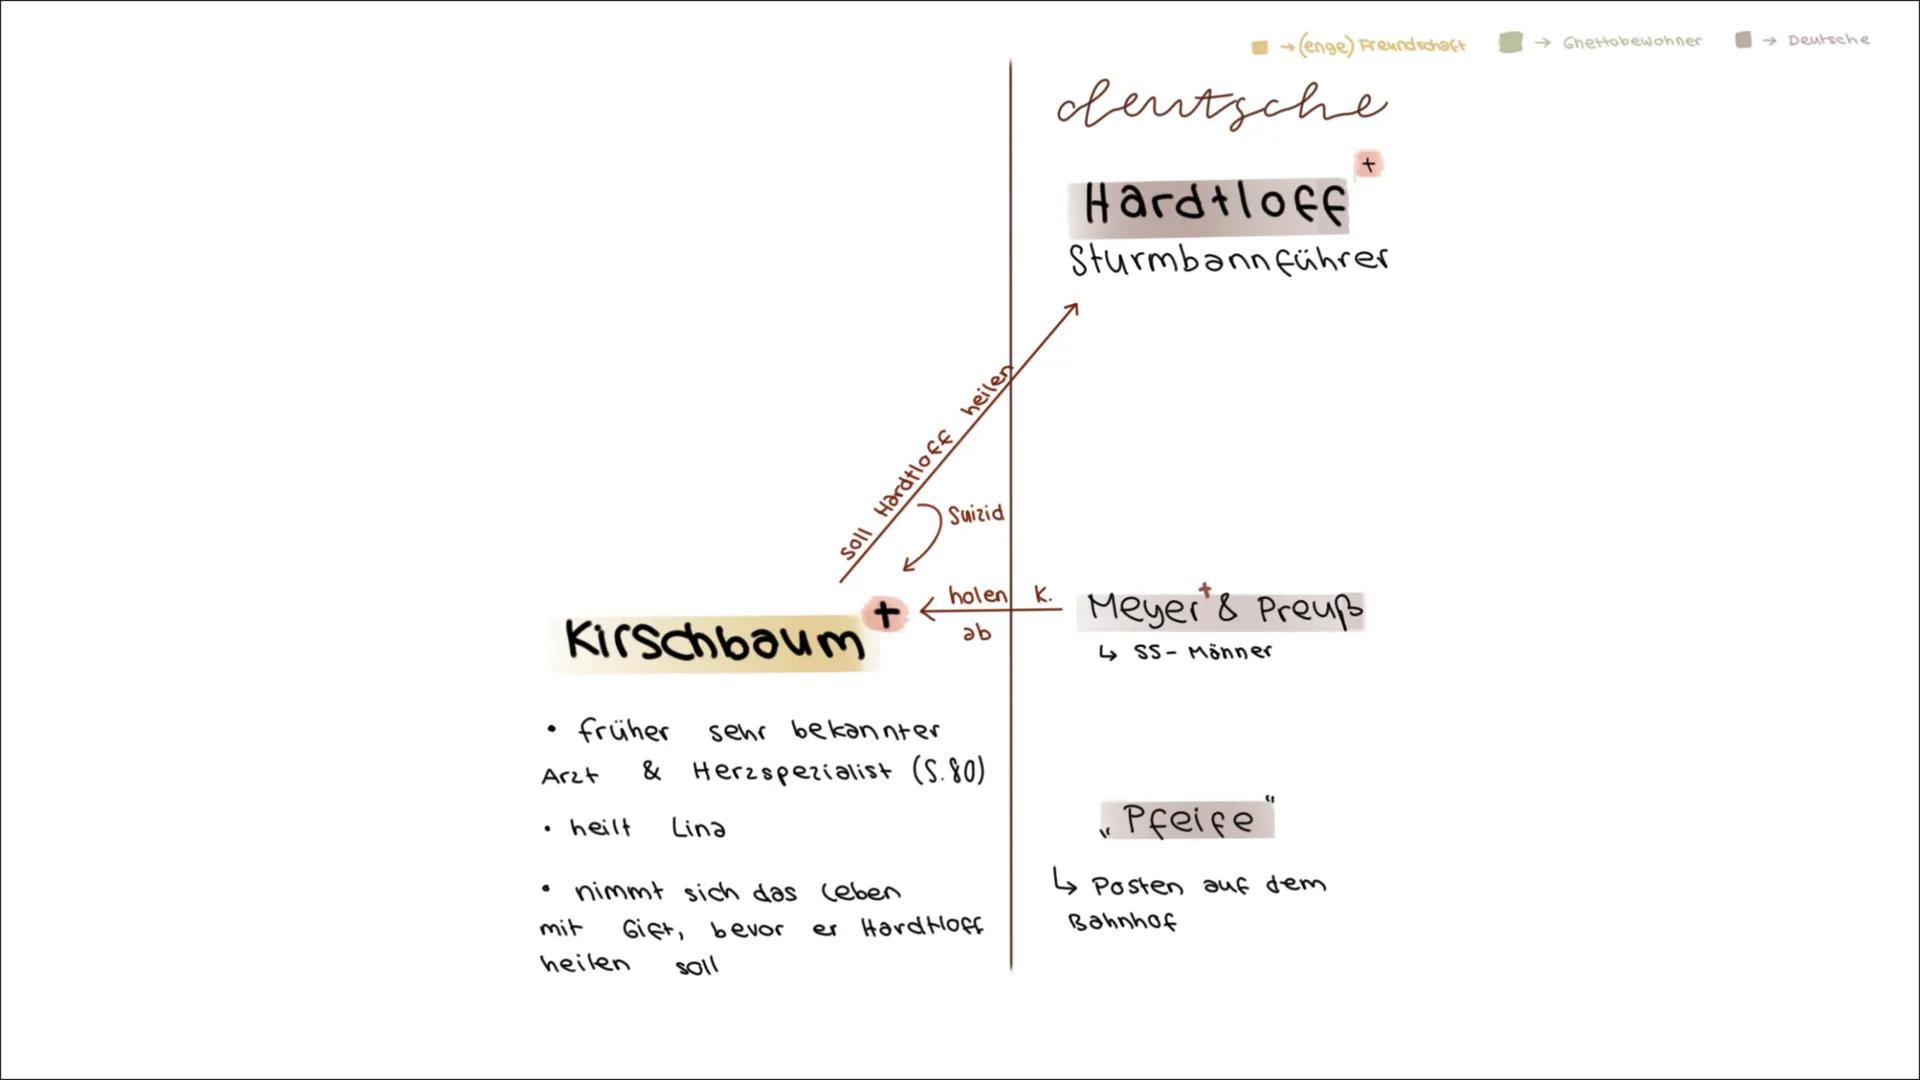 → (enge) Freundschaft → Ghettobewohner → Deutsche
deutsche
+
Hardtloff
Sturmbannführer
soll Hardtloff heilen
Suizid
holen K.
ab
Meyer + & Preuß
↳ SS-Männer
Kirschbaum +
• früher sehr bekannter
Arzt & Herzspezialist (S.80)
• heilt Lina
• nimmt sich das Leben
mit Gift, bevor er Hardtloff
heilen soll
„Pfeife“
↳ Posten auf dem
Bahnhof